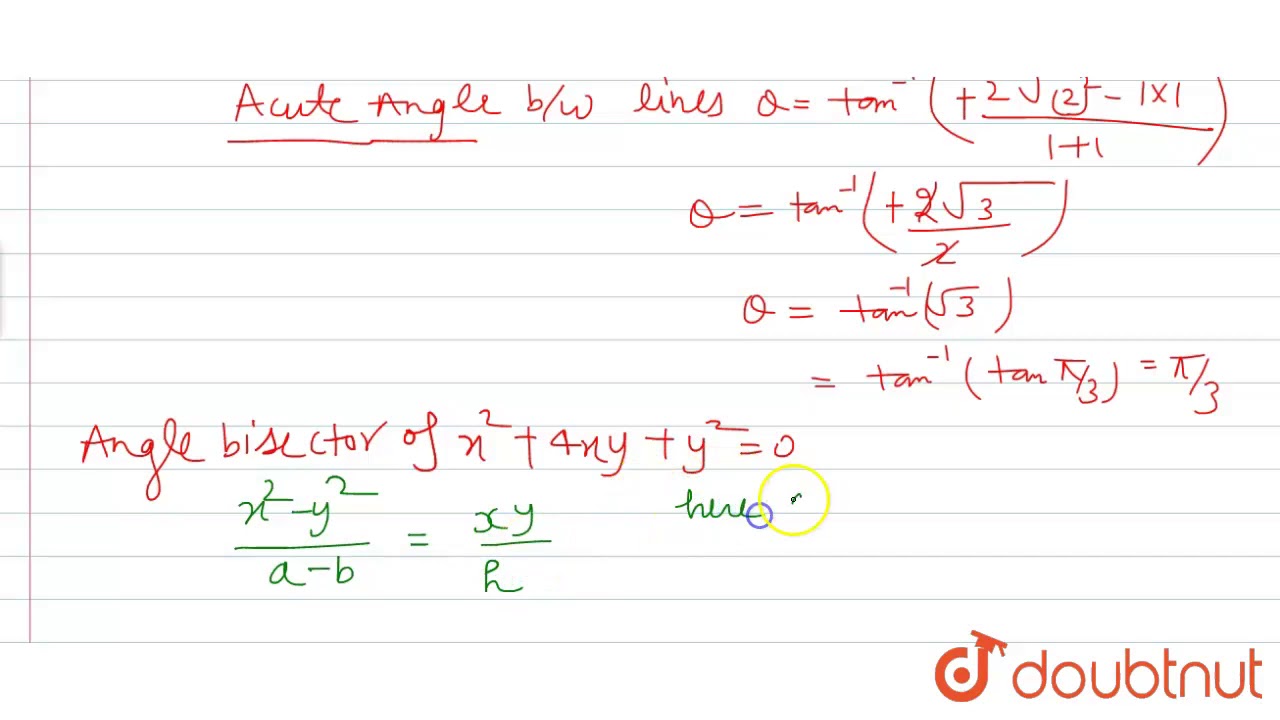 Acute Angle b/w lines θ = tan⁻¹ ( + 2√(2)² - 1×1 / 1+1 )
θ = tan⁻¹ ( + 2√3 / 2 )
θ = tan⁻¹ (√3)
= tan⁻¹ ( tan π/3 ) = π/3
Angle bisector of x² + 4xy + y² = 0
x² - y² / a - b = xy / h here
doubtnut